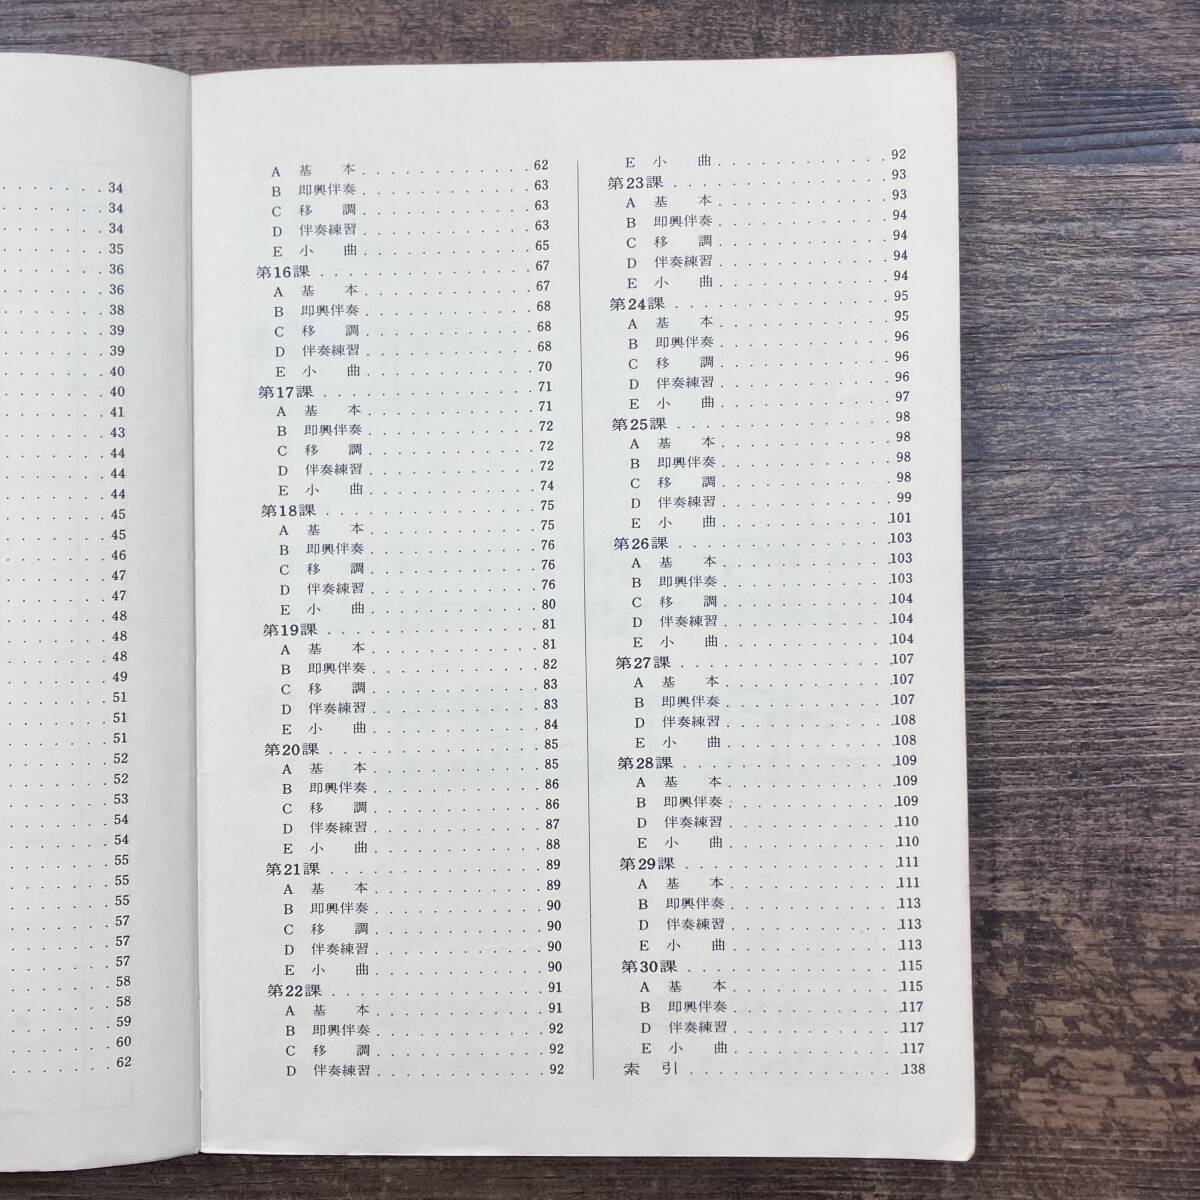 34
34
34
35
36
36
38
39
39
40
40
41
43
44
44
44
45
45
46
47
47
48
48
48
49
51
51
51
52
52
53
54
54
55
55
55
57
57
57
58
58
59
60
62
A 基本 62
B 即興伴奏 63
C 移調 63
D 伴奏練習 63
E 小曲 65
第16課 67
A 基本 67
B 即興伴奏 68
C 移調 68
D 伴奏練習 68
E 小曲 70
第17課 71
A 基本 71
B 即興伴奏 72
C 移調 72
D 伴奏練習 72
E 小曲 74
第18課 75
A 基本 75
B 即興伴奏 76
C 移調 76
D 伴奏練習 76
E 小曲 80
第19課 81
A 基本 81
B 即興伴奏 82
C 移調 83
D 伴奏練習 83
E 小曲 84
第20課 85
A 基本 85
B 即興伴奏 86
C 移調 86
D 伴奏練習 87
E 小曲 88
第21課 89
A 基本 89
B 即興伴奏 90
C 移調 90
D 伴奏練習 90
E 小曲 90
第22課 91
A 基本 91
B 即興伴奏 92
C 移調 92
D 伴奏練習 92
E 小曲 92
第23課 93
A 基本 93
B 即興伴奏 94
C 移調 94
D 伴奏練習 94
E 小曲 94
第24課 95
A 基本 95
B 即興伴奏 96
C 移調 96
D 伴奏練習 96
E 小曲 97
第25課 98
A 基本 98
B 即興伴奏 98
C 移調 98
D 伴奏練習 99
E 小曲 101
第26課 103
A 基本 103
B 即興伴奏 103
C 移調 104
D 伴奏練習 104
E 小曲 104
第27課 107
A 基本 107
B 即興伴奏 107
D 伴奏練習 108
E 小曲 108
第28課 109
A 基本 109
B 即興伴奏 109
D 伴奏練習 110
E 小曲 110
第29課 111
A 基本 111
B 即興伴奏 113
D 伴奏練習 113
E 小曲 113
第30課 115
A 基本 115
B 即興伴奏 117
D 伴奏練習 117
E 小曲 117
索引 138